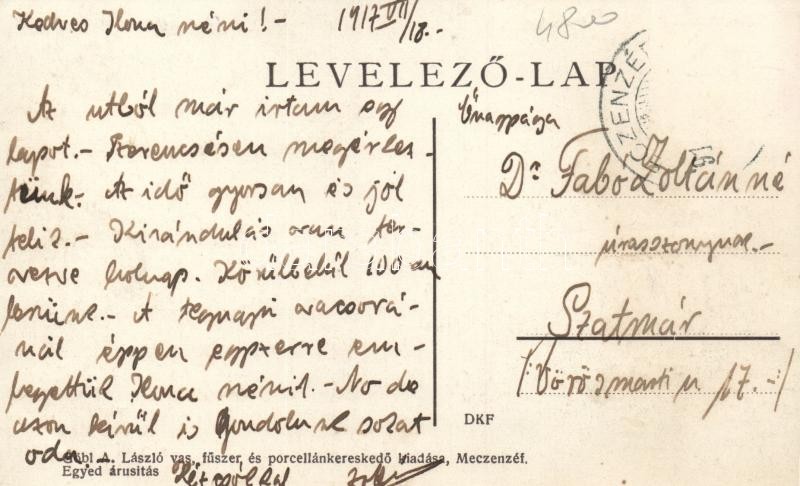 Kedves Ilona néni! - 1917 VII/18. -
LEVELEZŐ-LAP
Az utból már irtam egy
lapot. - Szerencsésen megérkez-
tünk. Az idő gyorsan és jól
telik. - Kirándulás van ter-
vezve holnap. Körülbelül 100-an
leszünk. - A tegnapi vacsorá-
nál éppen egyszerre em-
legettük Ilona nénit. - No de
azon kívül is gondolunk sokat
oda. -
Kézcsókkal
Őnagysága
Dr Fabó Zoltánné
úrasszonynak. -
Szatmár
(Vörösmarti u 17. -)
DKF
Göbl A. László vas, fűszer és porcellánkereskedő kiadása, Meczenzéf.
Egyed árusitás